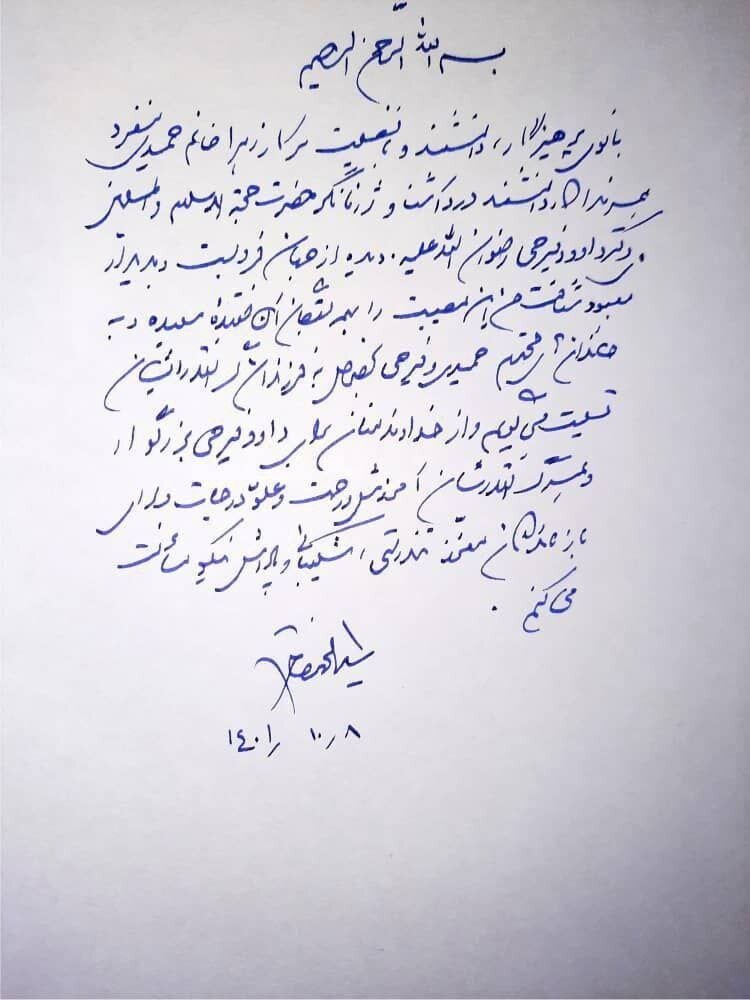 بسم الله الرحمن الرحیم
بانوی پرهیزگار، دانشمند و بافضیلت سرکار زهرا خانم حمیدی منفرد
همسر فداکار دانشمند دردآشنا و ژرفانگر حضرت حجة الاسلام و المسلمین
دکتر داوود فیرحی رضوان الله علیه. دیده از جهان فروبست و به دیدار
معبود شتافت من این مصیبت را به همه متعلقان آن فقیدهٔ سعیده و به
خاندان های محترم حمیدی و فیرحی بخصوص به فرزندان گرانقدر ایشان
تسلیت می گویم و از خداوند منان برای داوود فیرحی بزرگوار
و همسر گرانقدرشان آمرزش و رحمت و علوّ درجات و برای
بازماندگان معزّز تندرستی، شکیبائی و پاداش نیکو مسألت
می کنم.
سید محمد خاتمی
۱۴۰۱/۱۰/۸